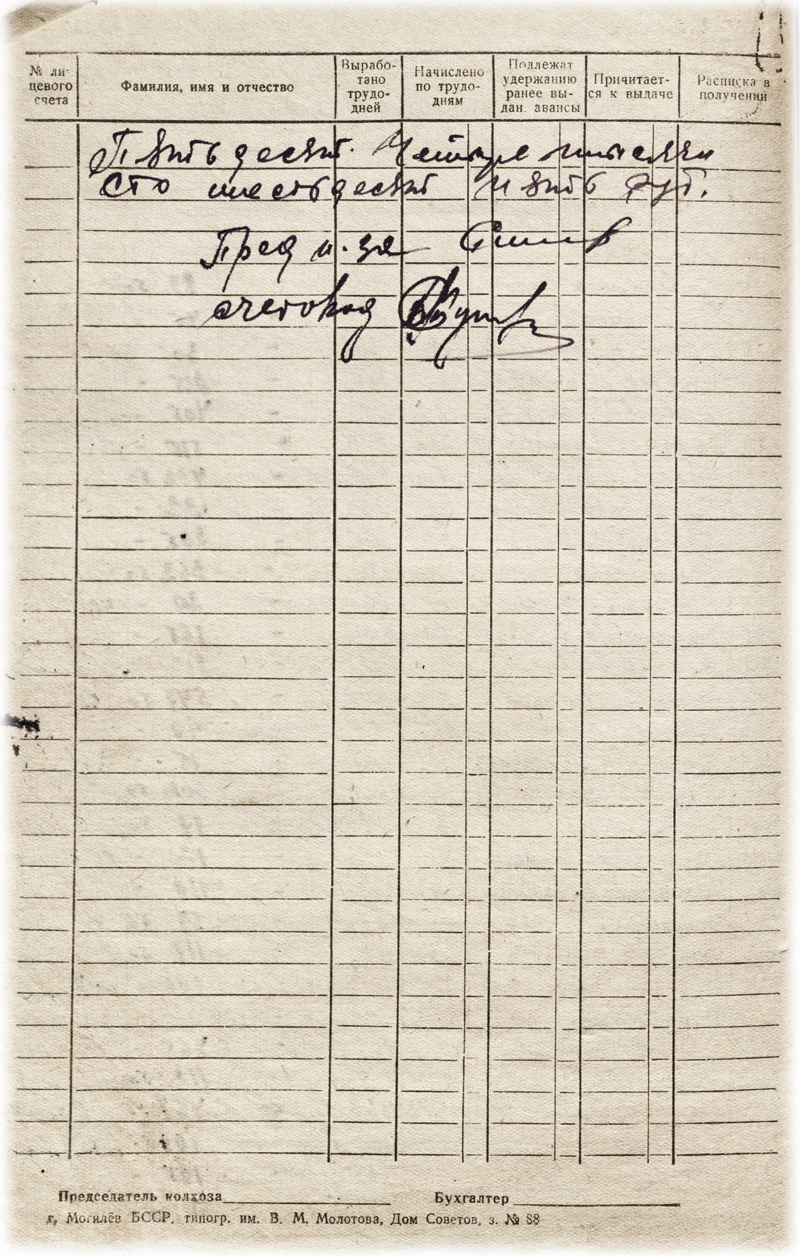 № ли-
цевого
счета
Фамилия, имя и отчество
Вырабо-
тано
трудо-
дней
Начислено
по трудо-
дням
Подлежат
удержанию
ранее вы-
дан. авансы
Причитает-
ся к выдаче
Расписка в
получении
Пятьдесят. Четыре тысячи
Сто шестьдесят пять руб.
Пред к-за
счетовод
Председатель колхоза
Бухгалтер
г. Могилёв БССР, типогр. им. В. М. Молотова, Дом Советов, з. № 88